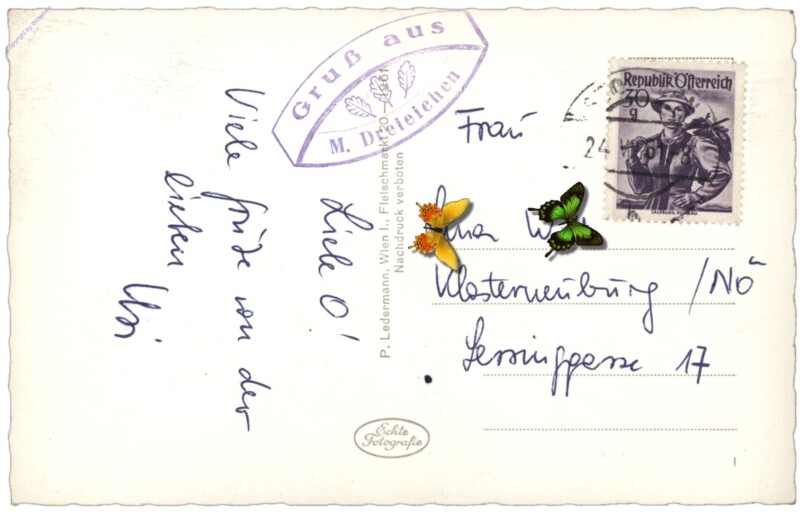 Copyright by
Gruß aus
M. Dreieichen
Liebe O!
Viele Grüße von der
lieben Usi
P. Ledermann, Wien I., Fleischmarkt 20 — 1961
Nachdruck verboten
Echte
Fotografie
Republik Österreich
30
g
24
61
8
Frau
Klosterneuburg /NÖ
Lessinggasse 17
1